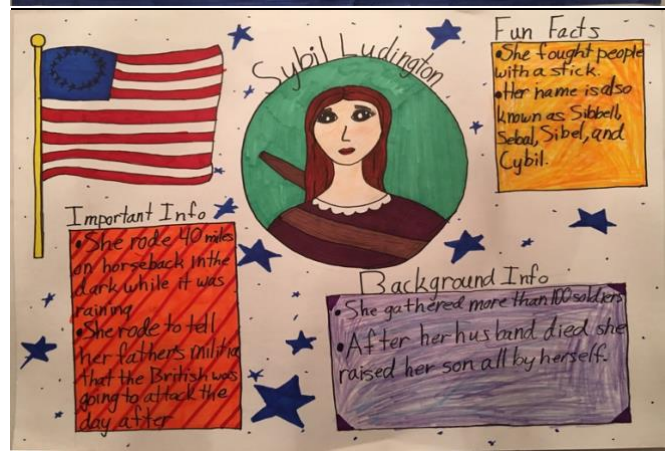 Sybil Ludington
Fun Facts
•She fought people
with a stick.
•Her name is also
known as Sibbell,
Sebal, Sibel, and
Cybil.
Important Info
•She rode 40 miles
on horseback in the
dark while it was
raining
•She rode to tell
her father's militia
that the British was
going to attack the
day after
Background Info
•She gathered more than 100 soldiers
•After her husband died she
raised her son all by herself.